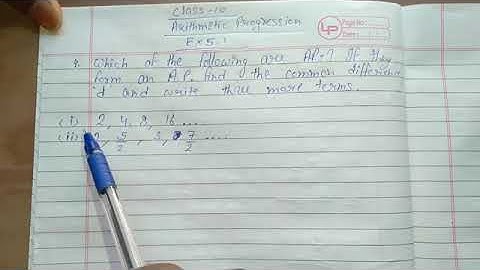 Class-10
Arithmetic Progression
Ex 5.1
LP Page No:
Date:
4. Which of the following are AP.? If they
form an A.P. find the common difference
'd' and write three more terms.
(i) 2, 4, 8, 16 ...
(ii) 2, 5/2, 3, 7/2 ....